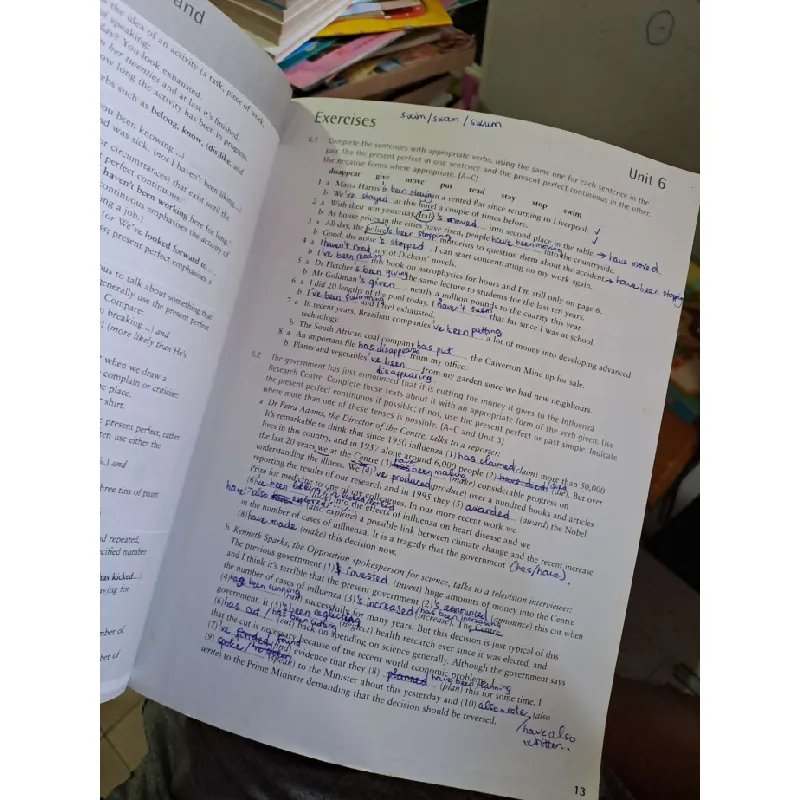 and
the idea of an activity (a task, piece of work,
of speaking:
You look exhausted.
her twenties and at last it's finished.
how long the activity has been in progress.
such as belong, know, (dis)like, and
you been knowing ...)
and was sick. (not I haven't been liking...)
or circumstances) that exist until the
perfect continuous:
haven't been working here for long.
continuous emphasises the activity of
ing a job.)
(or We've looked forward to ...
perfect emphasises a
us to talk about something that
generally use the present perfect
Compare:
breaking ...) and
(more likely than He's
when we draw a
complain or criticise:
place.
shirt.
present perfect, rather
use either the
.) and
three tins of paint
repeated,
specified number
has kicked...)
having for
number of
Exercises
swim/swam/swum
Unit 6
6.1 Complete the sentences with appropriate verbs, using the same one for each sentence in the
pair. Use the present perfect in one sentence and the present perfect continuous in the other.
Use negative forms where appropriate. (A–C)
disappear give move put read stay stop swim
1 a Maria Harris's been staying in a rented flat since returning to Liverpool. ✓
b We've stayed at this hotel a couple of times before. ✓
2 a With their win yesterday, Italy's moved into second place in the table → have moved
b As house prices in the cities have risen, people have been moving into the countryside.
3 a All day, the police's been stopping motorists to question them about the accident → have been stopping
b Good, the noise's stopped. I can start concentrating on my work again.
4 a I haven't read any of Dickens' novels.
b I've been reading this book on astrophysics for hours and I'm still only on page 6.
5 a Dr Fletcher's been giving the same lecture to students for the last ten years.
b Mr Goldman's given nearly a million pounds to the charity this year.
6 a I did 20 lengths of the pool today. I haven't swum that far since I was at school.
b I've been swimming and I feel exhausted.
7 a In recent years, Brazilian companies 've been putting a lot of money into developing advanced
technology.
b The South African coal company has put the Calverton Mine up for sale.
8 a An important file has disappeare from my office.
b Plants and vegetables 've been disappearing from my garden since we had new neighbours.
6.2 The government has just announced that it is cutting the money it gives to the Influenza
Research Centre. Complete these texts about it with an appropriate form of the verb given. Use
the present perfect continuous if possible; if not, use the present perfect or past simple. Indicate
where more than one of these tenses is possible. (A–C and Unit 3)
a Dr Petra Adams, the Director of the Centre, talks to a reporter:
It's remarkable to think that since 1950 influenza (1) has claimed (claim) more than 50,000
lives in this country, and in 1957 alone around 6,000 people (2) (die). But over
the last 20 years we at the Centre (3) has been making (make) considerable progress on
understanding the illness. We (4) 've produced (produce) over a hundred books and articles
reporting the results of our research and in 1995 they (5) awarded (award) the Nobel
Prize for medicine to one of my colleagues. In our more recent work we
(6) 've been looking (look) into the effects of influenza on heart disease and we
(7) (also explore) a possible link between climate change and the recent increase
in the number of cases of influenza. It is a tragedy that the government (has/have)
(8) have made (make) this decision now.
b Kenneth Sparks, the Opposition spokesperson for science, talks to a television interviewer:
The previous government (1) invested (invest) huge amounts of money into the Centre
and I think it's terrible that the present government (2) 's announced (announce) this cut when
the number of cases of influenza (3) 's increased (increase). The Centre
(4) has been running (run) successfully for many years. But this decision is just typical of this
government. It (5) 's been neglecting (neglect) health research ever since it was elected, and
(6) has cut / has been cutting (cut) back on spending on science generally. Although the government says
that the cut is necessary because of the recent world economic problems, I
(7) 've found (find) evidence that they (8) have been planning (plan) this for some time. I
(9) spoke (speak) to the Minister about this yesterday and (10) also wrote (also
write) to the Prime Minister demanding that the decision should be reversed.
/have also
written.
13